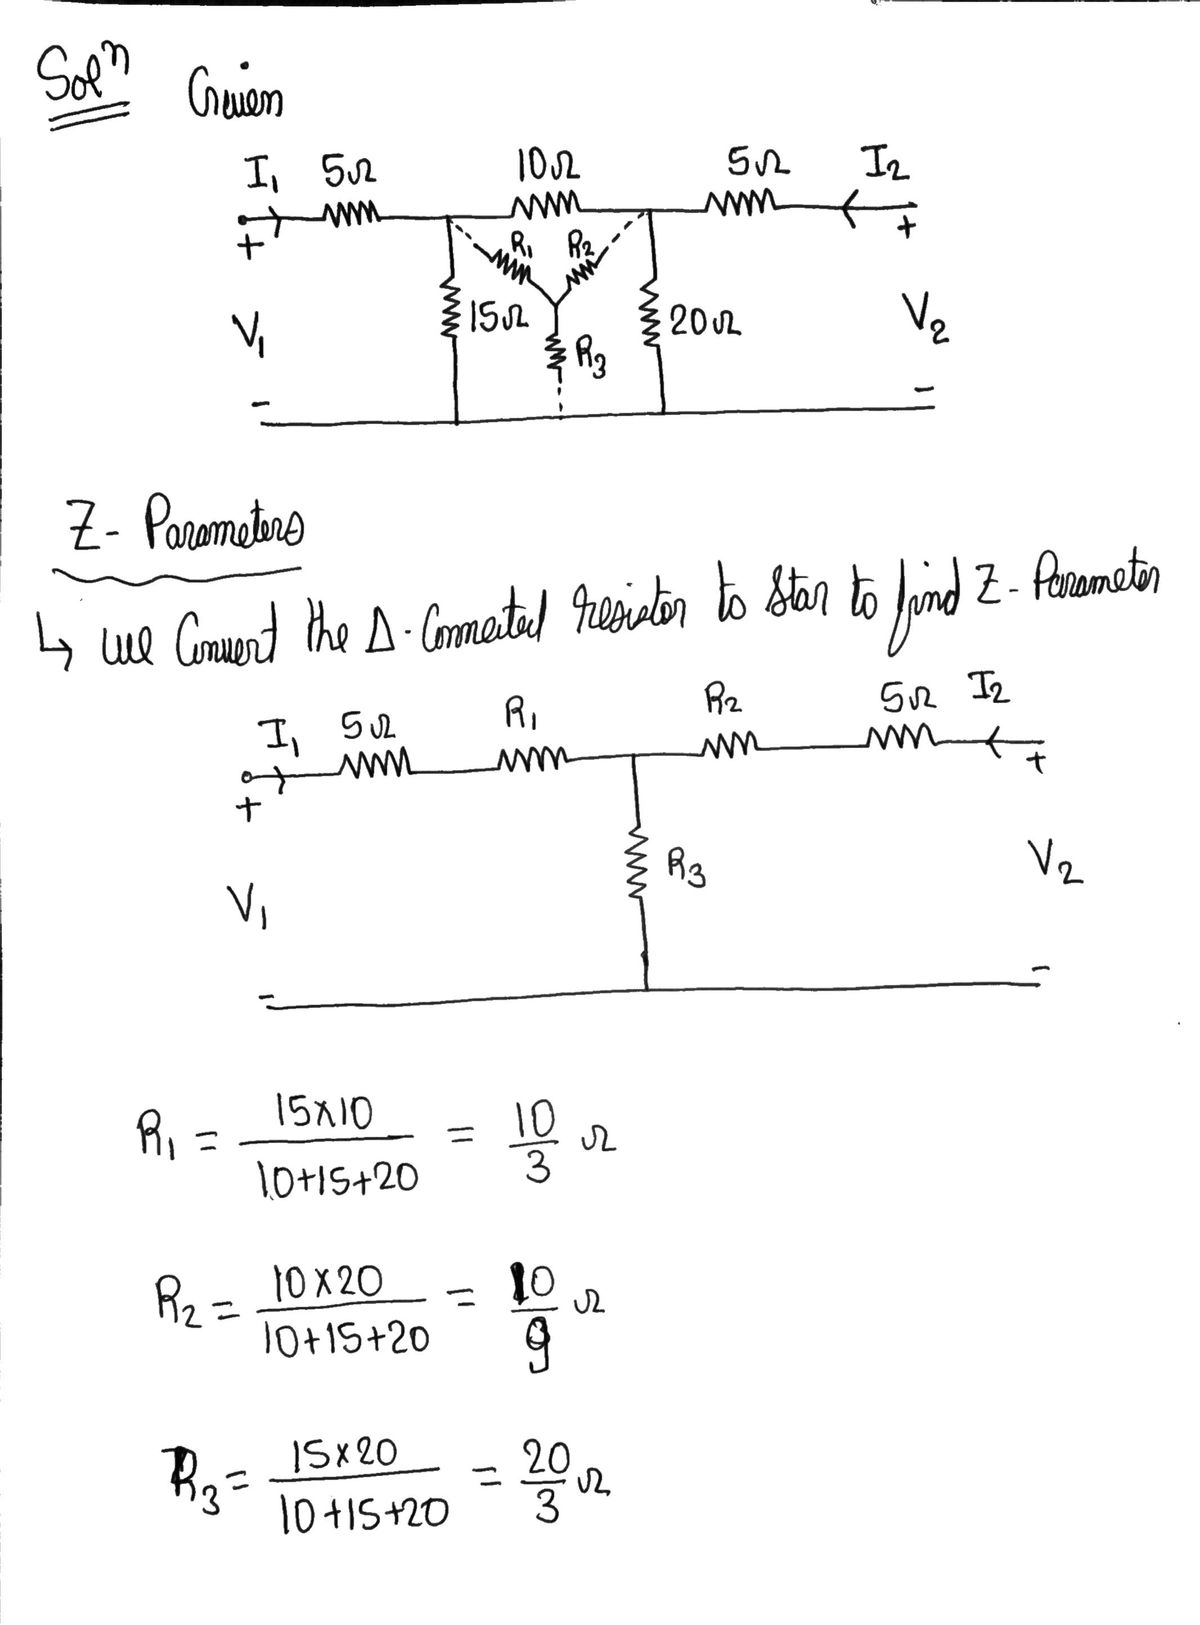 Solⁿ Given
I₁ 5Ω 10Ω 5Ω I₂
+ R₁ R₂ +
V₁ 15Ω R₃ 20Ω V₂
- -
Z- Parameters
↳ we Convert the Δ-Connected resistor to Star to find Z- Parameter
I₁ 5Ω R₁ R₂ 5Ω I₂
+ +
V₁ R₃ V₂
- -
R₁ = 15×10 / 10+15+20 = 10/3 Ω
R₂ = 10×20 / 10+15+20 = 10/9 Ω
R₃ = 15×20 / 10+15+20 = 20/3 Ω